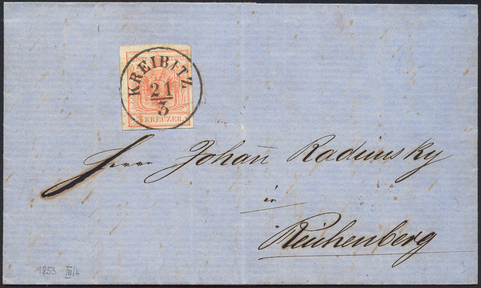 KREIBITZ
21
3
KREUZER
Herrn Johan̅ Radimsky
in
Reichenberg
1853 III/